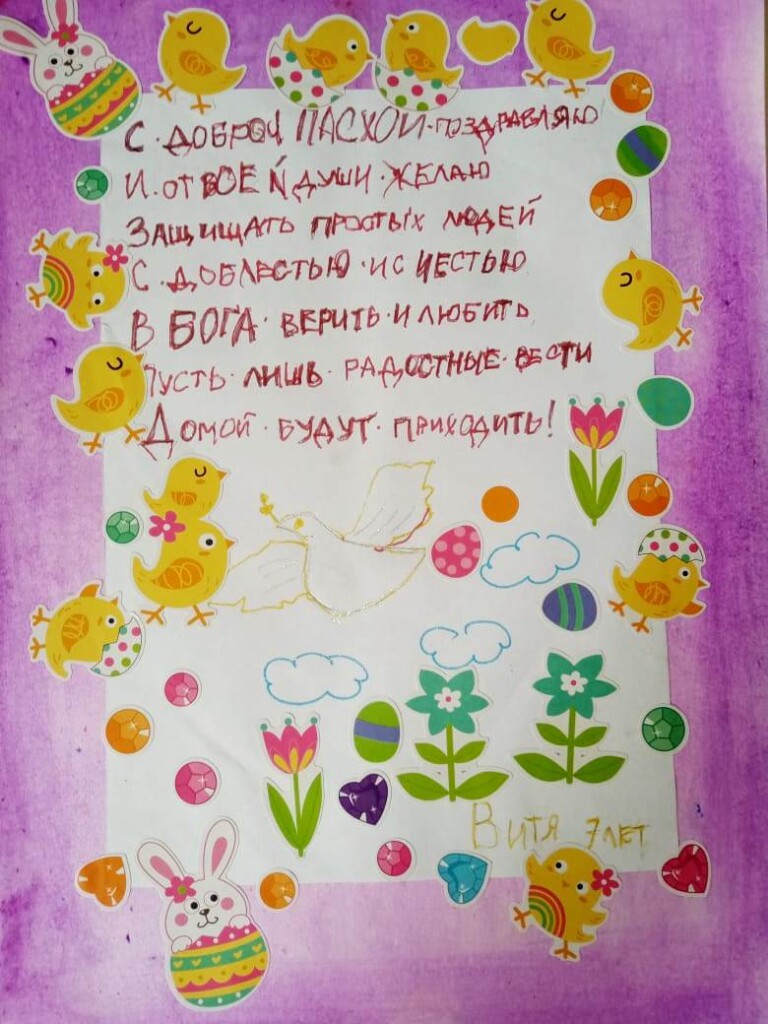 С·ДОБРОЙ ПАСХОЙ·ПОЗДРАВЛЯЮ
И·ОТ ВСЕЙ ДУШИ·ЖЕЛАЮ
ЗАЩИЩАТЬ ПРОСТЫХ ЛЮДЕЙ
С·ДОБЛЕСТЬЮ·И С ЧЕСТЬЮ
В БОГА·ВЕРИТЬ·И ЛЮБИТЬ
ПУСТЬ·ЛИШЬ·РАДОСТНЫЕ·ВЕСТИ
ДОМОЙ·БУДУТ·ПРИХОДИТЬ!
ВИТЯ 7 ЛЕТ